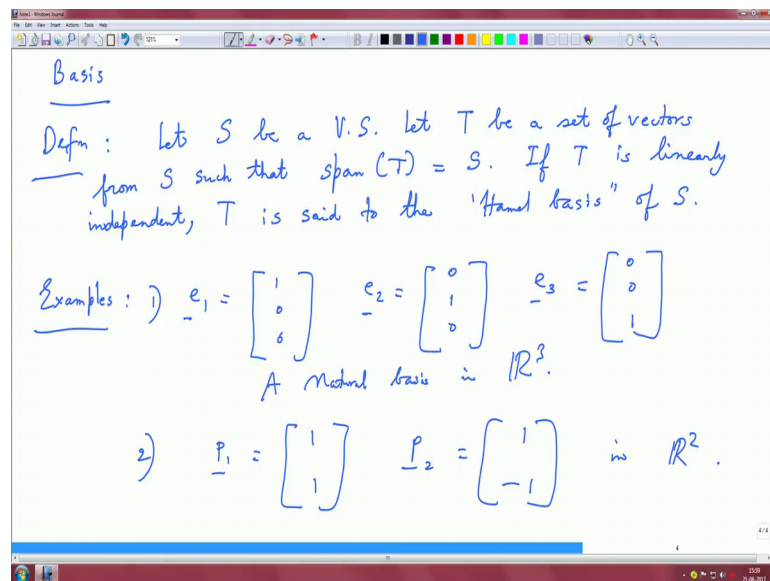 Note1 - Windows Journal
File Edit View Insert Actions Tools Help
121%
B I
Basis
Defn : Let S be a V.S. Let T be a set of vectors
from S such that span (T) = S. If T is linearly
independent, T is said to the "Hamel basis" of S.
Examples : 1) e1 = [1 0 0] e2 = [0 1 0] e3 = [0 0 1]
A Natural basis in ℝ³.
2) P1 = [1 1] P2 = [1 -1] in ℝ².
4/4
4
15:59